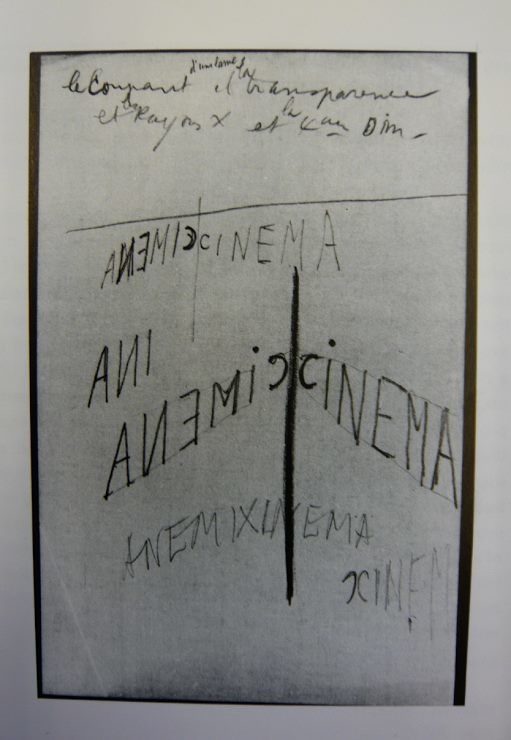 le Coupant d'une lame et la transparence
et les Rayons X et la 4eme Dim -
AИƎMIƆCINEMA
AИI
AИƎMiƆCiNEMA
ANEMIXINEMA
ƆCINEM